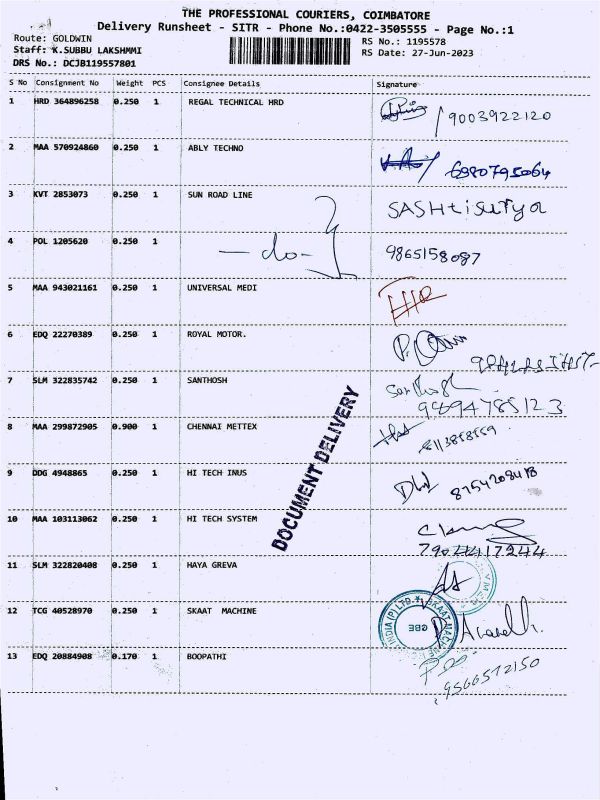 THE PROFESSIONAL COURIERS, COIMBATORE
Delivery Runsheet - SITR - Phone No.:0422-3505555 - Page No.:1
Route: GOLDWIN
Staff: K.SUBBU LAKSHMMI
DRS No.: DCJB119557801
RS No.: 1195578
RS Date: 27-Jun-2023
S No Consignment No Weight PCS Consignee Details Signature
1 HRD 364896258 0.250 1 REGAL TECHNICAL HRD 9003922120
2 MAA 570924860 0.250 1 ABLY TECHNO 6980795064
3 KVT 2853073 0.250 1 SUN ROAD LINE SASHtisutya
4 POL 1205620 0.250 1 —do— 9865158087
5 MAA 943021161 0.250 1 UNIVERSAL MEDI
6 EDQ 22270389 0.250 1 ROYAL MOTOR.
7 SLM 322835742 0.250 1 SANTHOSH Santhosh
9894785123
8 MAA 299872905 0.900 1 CHENNAI METTEX
9 DDG 4948865 0.250 1 HI TECH INUS 8754208418
10 MAA 103113062 0.250 1 HI TECH SYSTEM
7904417244
11 SLM 322820408 0.250 1 HAYA GREVA
12 TCG 40528970 0.250 1 SKAAT MACHINE
13 EDQ 20884908 0.170 1 BOOPATHI
9566572150
DOCUMENT DELIVERY